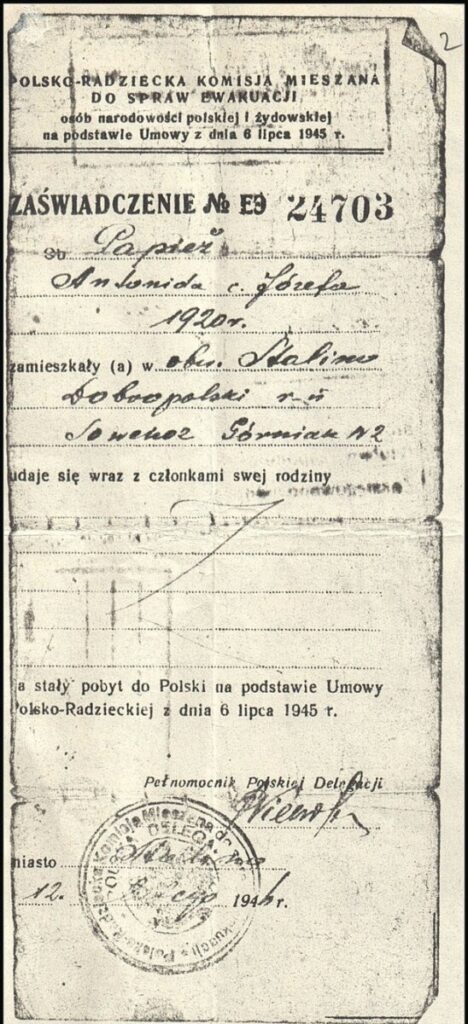 2
POLSKO-RADZIECKA KOMISJA MIESZANA
DO SPRAW EWAKUACJI
osób narodowości polskiej i żydowskiej
na podstawie Umowy z dnia 6 lipca 1945 r.
ZAŚWIADCZENIE № EЭ 24703
Ob Papież
Antonida c. Józefa
1920 r.
zamieszkały (a) w obw. Stalino
Dobropolski r-n
Sowchoz Górniak N2
udaje się wraz z członkami swej rodziny
a stały pobyt do Polski na podstawie Umowy
Polsko-Radzieckiej z dnia 6 lipca 1945 r.
Pełnomocnik Polskiej Delegacji
miasto Stalino
12. 1946 r.